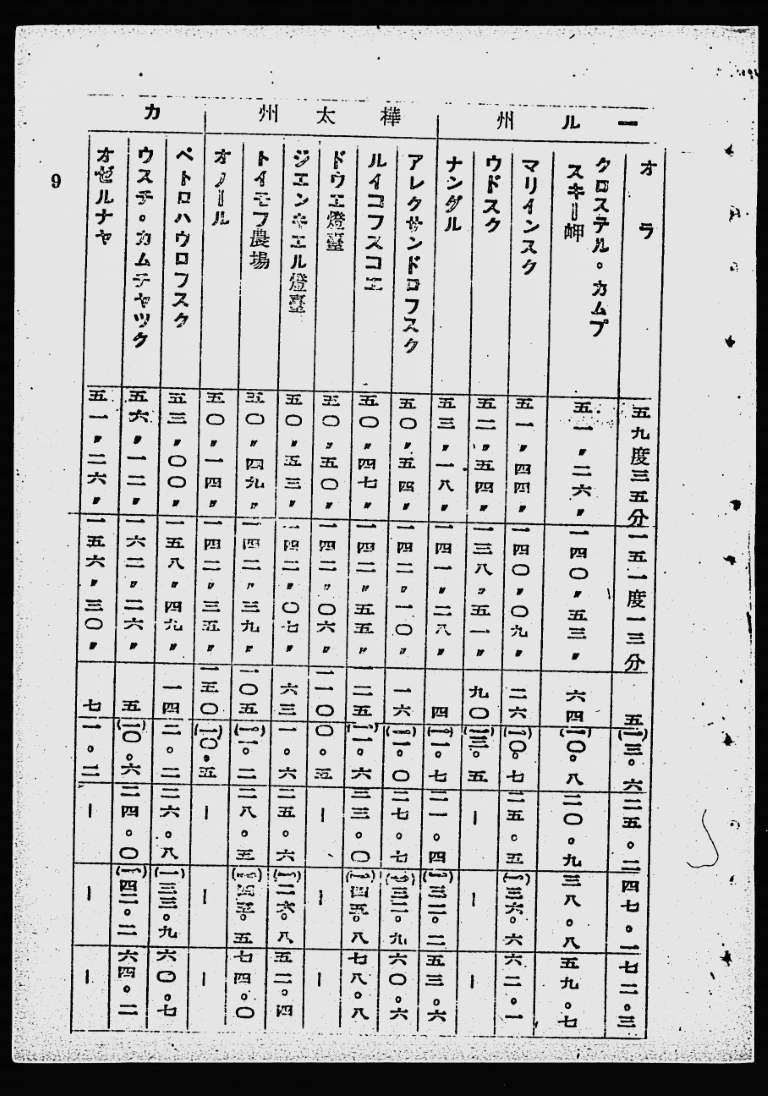 ール州
樺太州
カ
オラ 五九度三五分 一五一度一三分 五 (一)三。六 二五。二 四七。一 七二。三
クロステル。カムプスキー岬 五一〃二六〃 一四〇〃五三〃 六四 (一)〇。八 二〇。九 三八。八 五九。七
マリインスク 五一〃四四〃 一四〇〃〇九〃 二六 (一)〇。七 二五。五 (一)三六。六 六二。一
ウドスク 五二〃五四〃 一三八〃五一〃 九〇 (一)三。五 ー ー ー
ナンダル 五三〃一八〃 一四一〃二八〃 四 (一)一。七 二一。四 (一)三二。二 五三。六
アレクサンドロフスク 五〇〃五四〃 一四二〃一〇〃 一六 (一)一。〇 二七。七 (一)三二。九 六〇。六
ルイコフスコエ 五〇〃四七〃 一四二〃五五〃 一二五 (一)一。六 三三。〇 (一)四五。八 七八。八
ドウエ燈臺 五〇〃五〇〃 一四二〃〇六〃 一一〇〇 〇。五 ー ー ー
ジエンキエル燈臺 五〇〃五三〃 一四二〃〇七〃 六三 一。六 二五。六 (一)二六。八 五二。四
トイモフ農場 五〇〃四九〃 一四二〃三九〃 一〇五 (一)一。二 二八。五 (一)四五。五 七四。〇
オノール 五〇〃一四〃 一四二〃三五〃 一五〇 (一)〇。五 ー ー ー
ペトロハウロフスク 五三〃〇〇〃 一五八〃四九〃 一四 二。二 二六。八 (一)三三。九 六〇。七
ウスチ。カムチヤツク 五六〃一二〃 一六二〃二六〃 五 (一)〇。六 二四。〇 (一)四二。二 六四。二
オゼルナヤ 五一〃二六〃 一五六〃三〇〃 七 一。二 ー ー ー
9